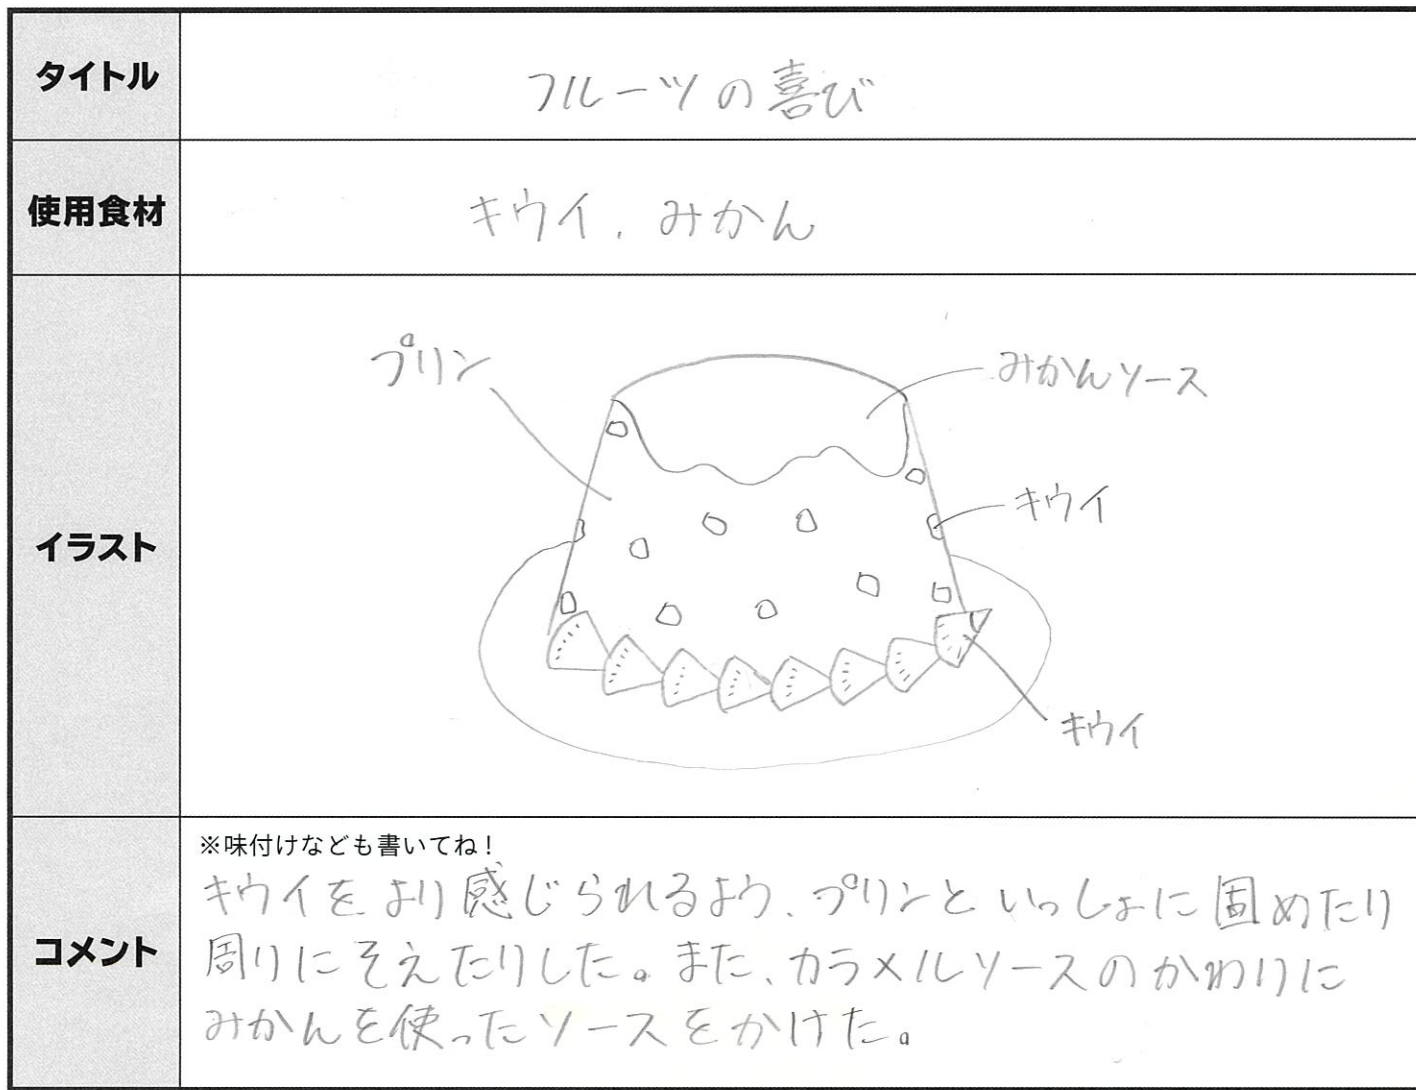 タイトル
フルーツの喜び
使用食材
キウイ、みかん
イラスト
プリン
みかんソース
キウイ
キウイ
コメント
※味付けなども書いてね！
キウイをより感じられるよう、プリンといっしょに固めたり
周りにそえたりした。また、カラメルソースのかわりに
みかんを使ったソースをかけた。